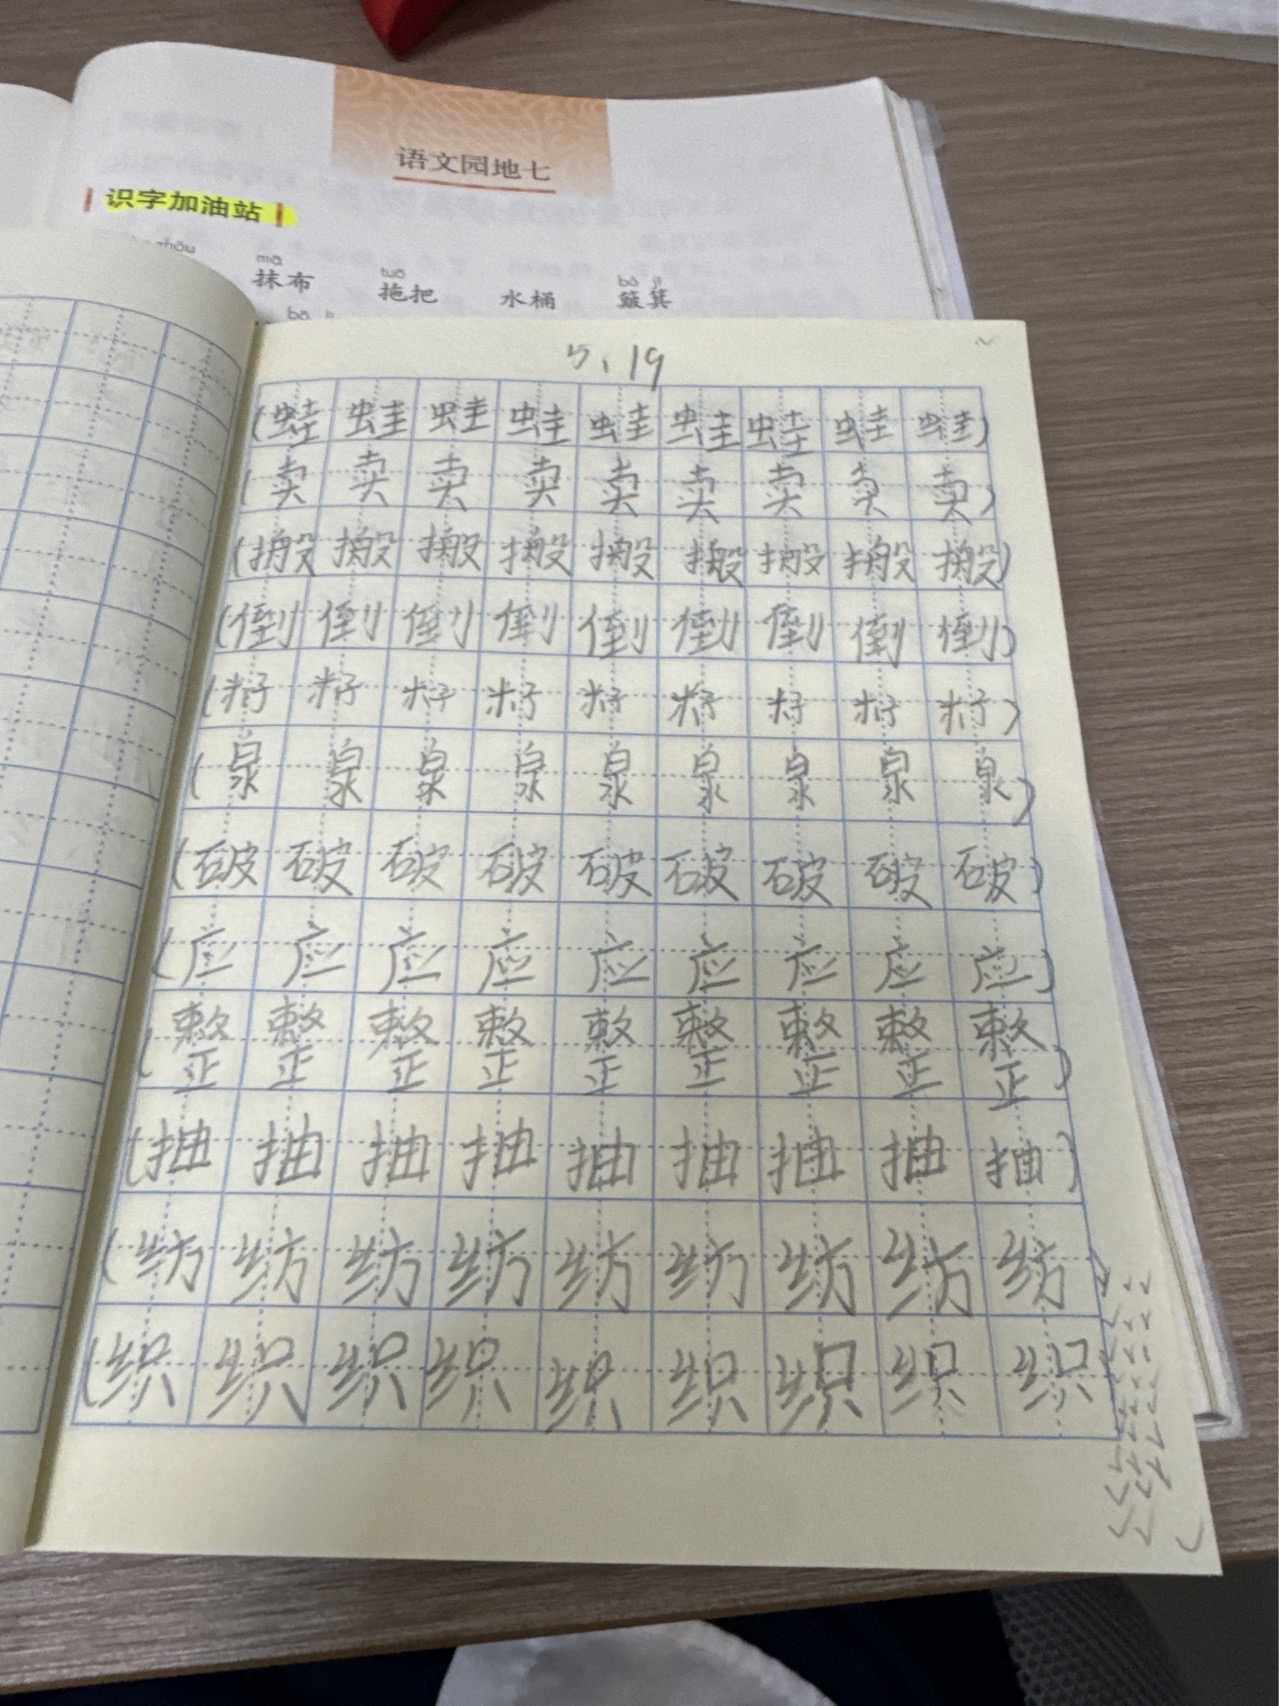 语文园地七
识字加油站
zhǒu mā tuō bò ji
抹布 拖把 水桶 簸箕
5.19
(蛙蛙蛙蛙蛙蛙蛙蛙蛙)
(卖卖卖卖卖卖卖卖卖)
(搬搬搬搬搬搬搬搬搬)
(倒倒倒倒倒倒倒倒倒)
(籽籽籽籽籽籽籽籽籽)
(泉泉泉泉泉泉泉泉泉)
(破破破破破破破破破)
(应应应应应应应应应)
(整整整整整整整整整)
(抽抽抽抽抽抽抽抽抽)
(纺纺纺纺纺纺纺纺纺)
(织织织织织织织织织